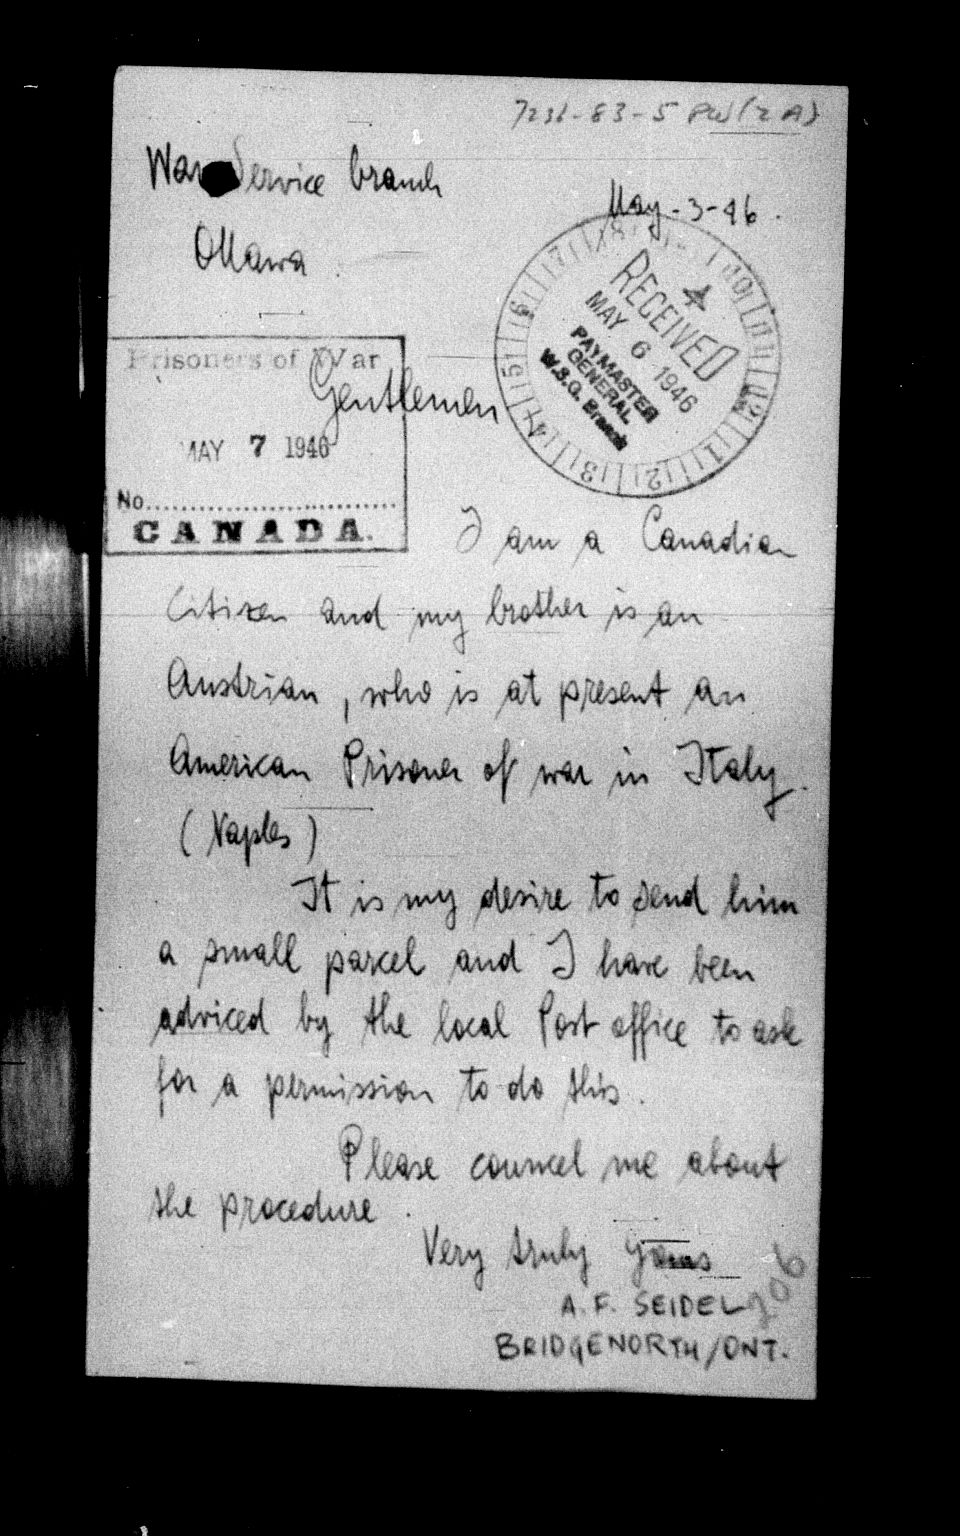 7236-83-5 PW (2A)
War Service branch
May-3-46.
Ottawa
RECEIVED
MAY 6 1946
PAYMASTER
GENERAL
W.S.G. Branch
Prisoners of War
Gentlemen
MAY 7 1946
No.
CANADA.
I am a Canadian
Citizen and my brother is an
Austrian, who is at present an
American Prisoner of war in Italy.
(Naples)
It is my desire to send him
a small parcel and I have been
adviced by the local Post office to ask
for a permission to do this.
Please councel me about
the procedure.
Very truly yours
A. F. SEIDEL
206
BRIDGENORTH/ONT.